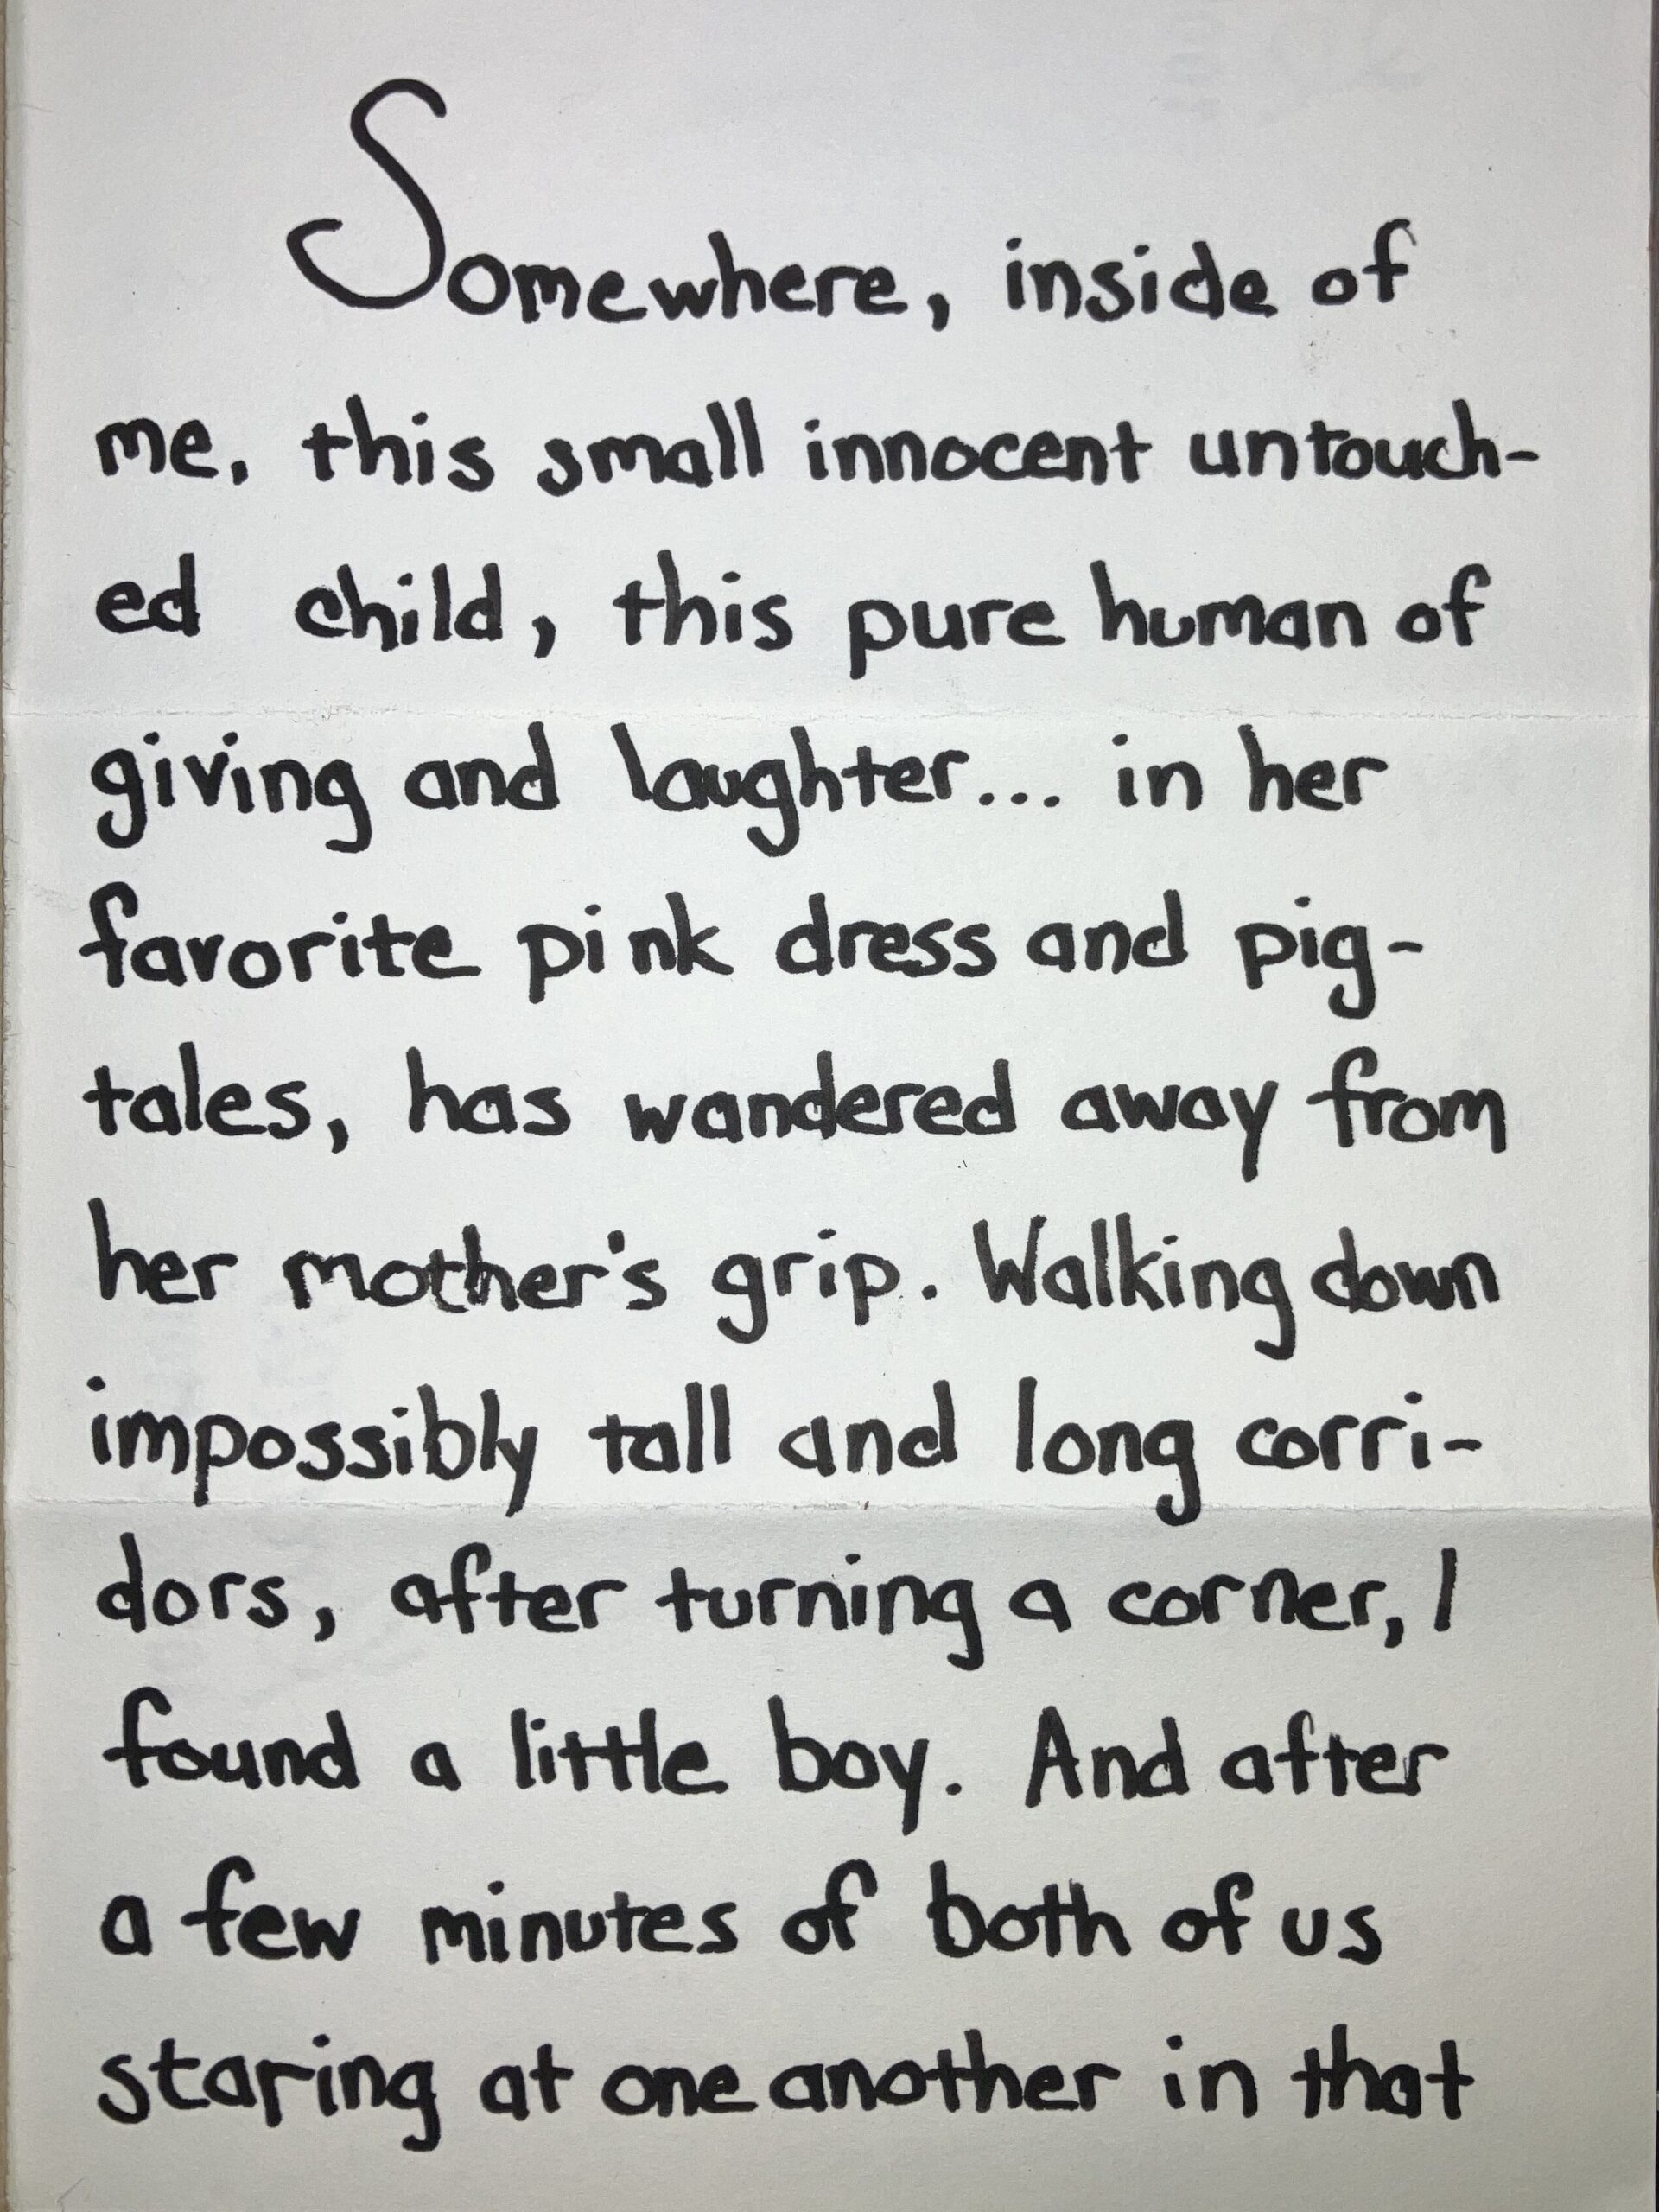 Somewhere, inside of
me, this small innocent untouch-
ed child, this pure human of
giving and laughter... in her
favorite pink dress and pig-
tales, has wandered away from
her mother's grip. Walking down
impossibly tall and long corri-
dors, after turning a corner, I
found a little boy. And after
a few minutes of both of us
staring at one another in that